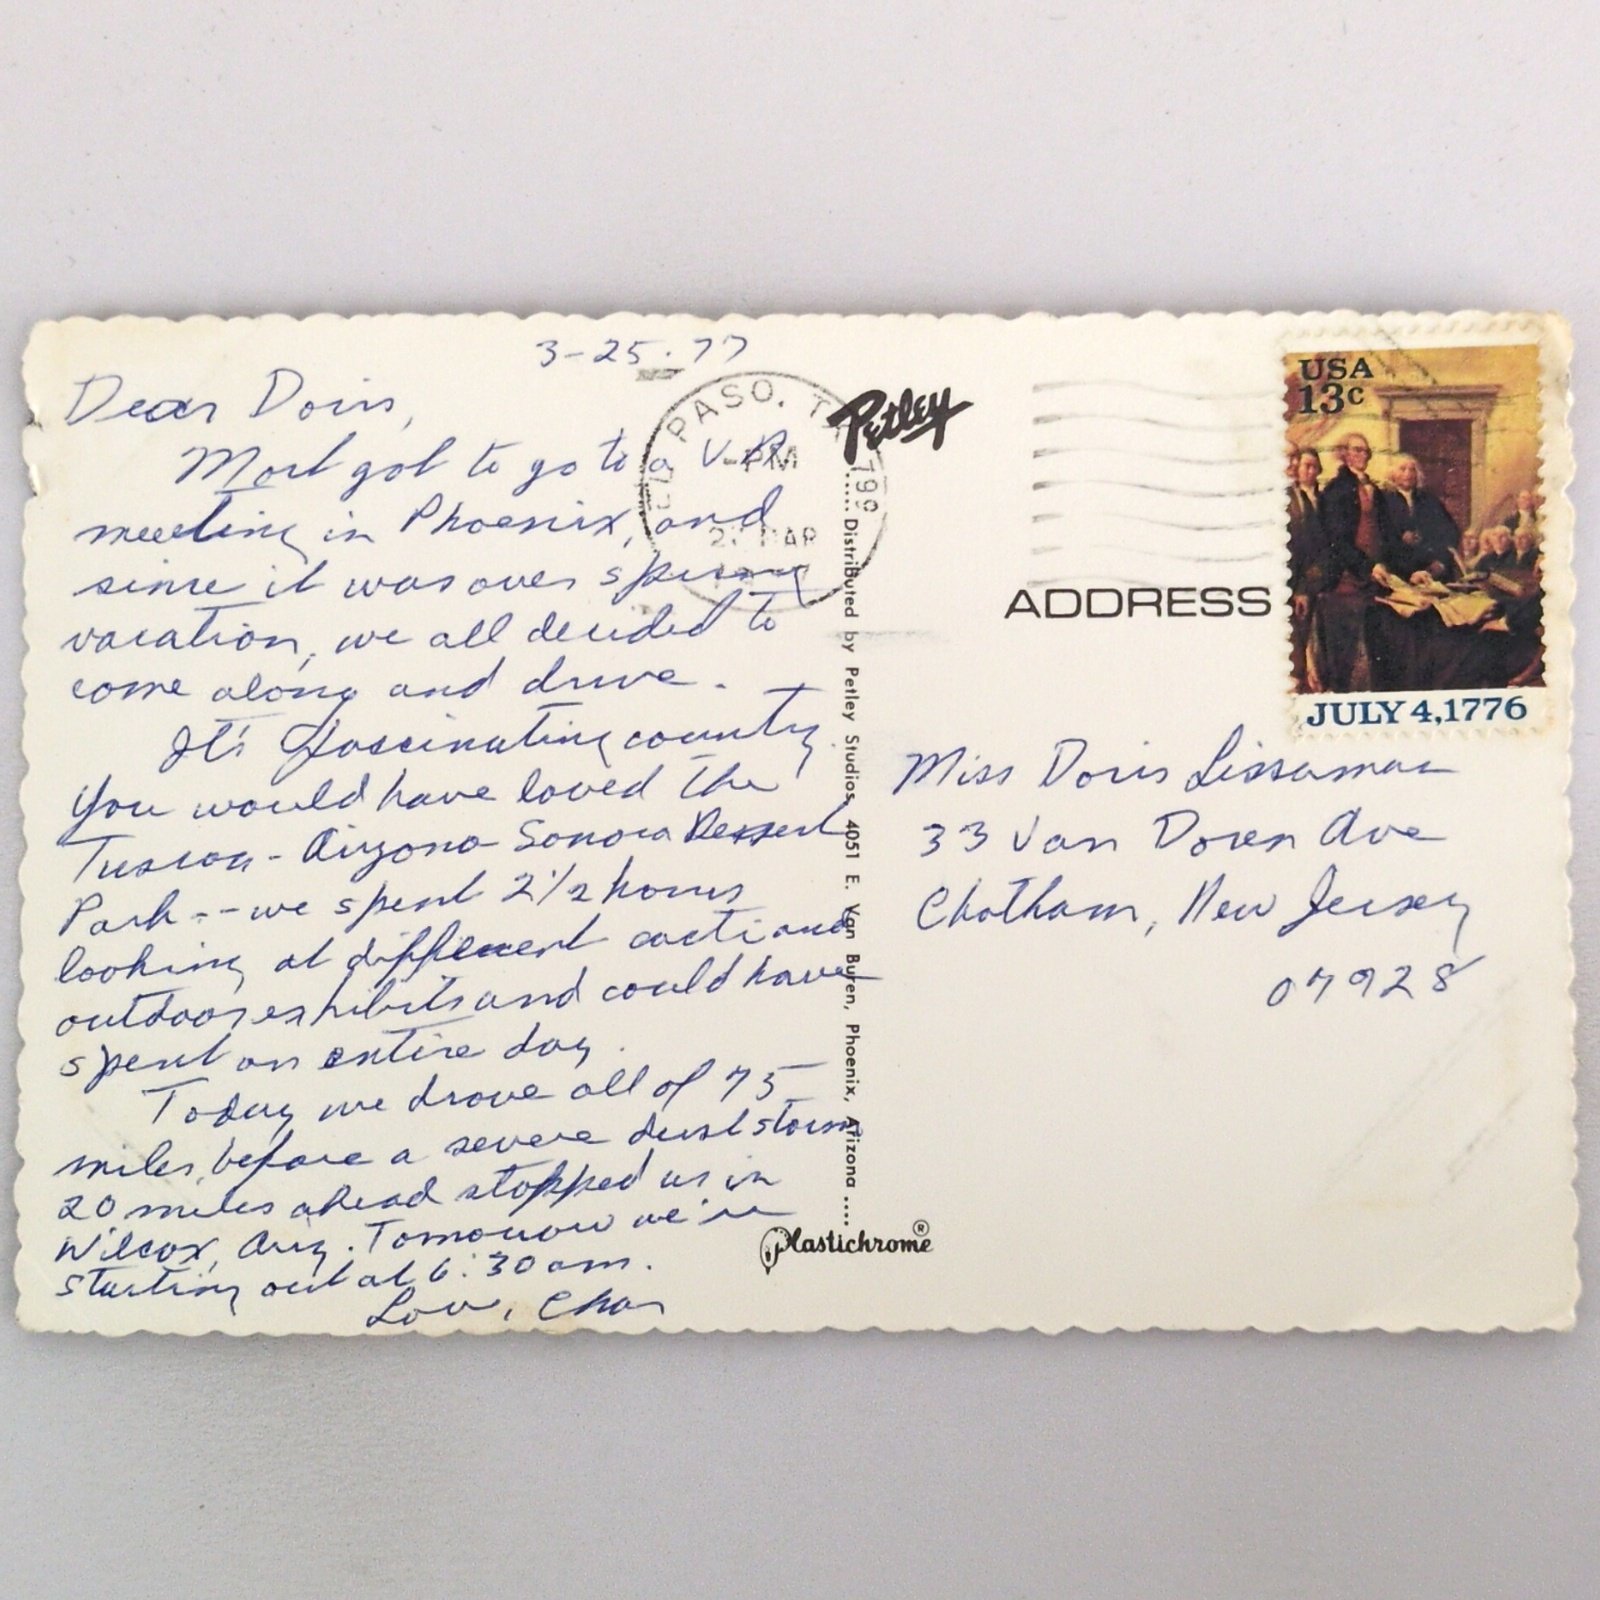 3-25-77
Dear Doris,
Mort got to go to a V.P.
meeting in Phoenix, and
since it was over spring
vacation, we all decided to
come along and drive.
It's fascinating country.
You would have loved the
Tuscon - Arizona Sonora Dessert
Park -- we spent 2 1/2 hours
looking at different cacti and
outdoor exhibits and could have
spent an entire day.
Today we drove all of 75
miles, before a severe dust storm
20 miles ahead stopped us in
Wilcox, Ariz. Tomorrow we're
starting out at 6:30 am.
Love, Char
EL PASO, T
PM
MAR
799
Petley
..... Distributed by Petley Studios, 4051 E. Van Buren, Phoenix, Arizona ....
Plastichrome®
USA
13c
JULY 4, 1776
ADDRESS
Miss Doris
33 Van Doren Ave
Chatham, New Jersey
07928